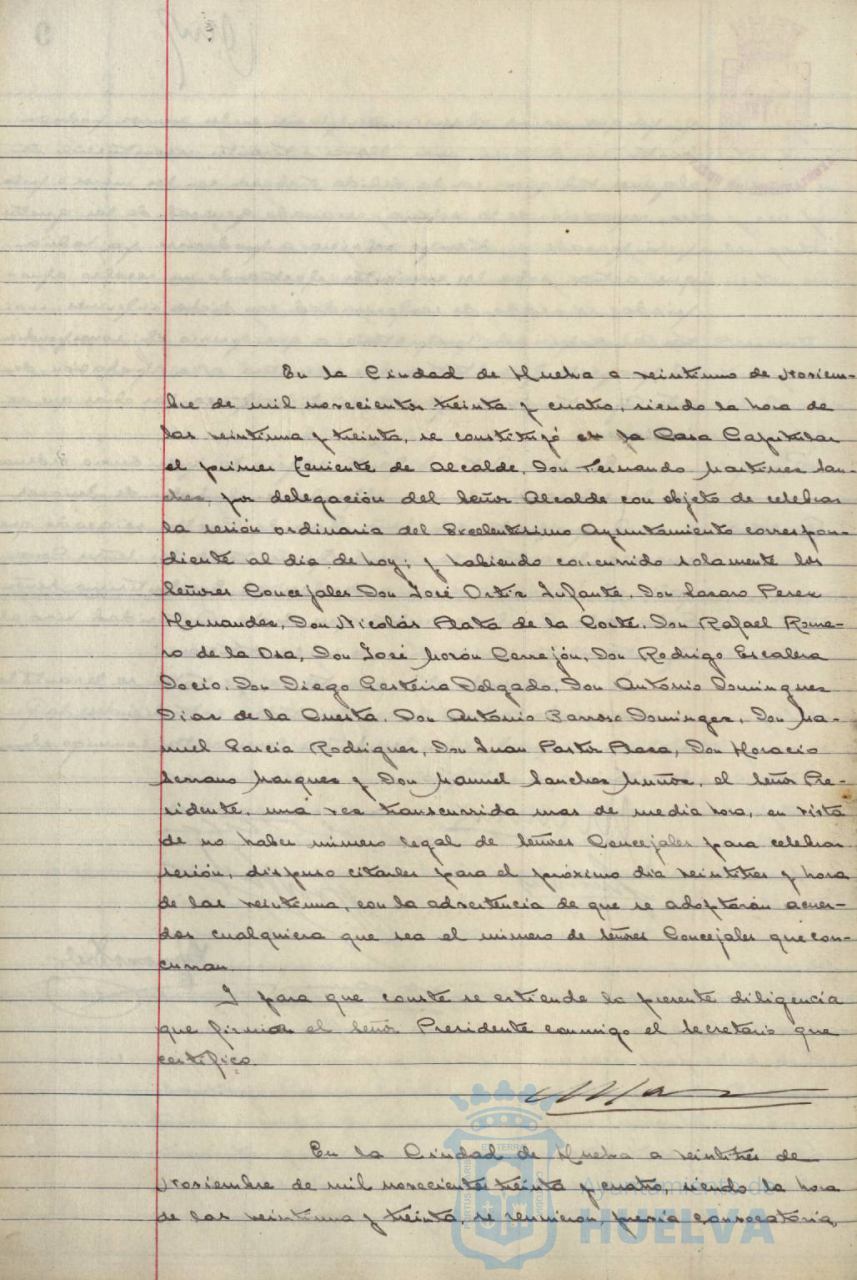 En la Ciudad de Huelva a veintiuno de Noviem-
bre de mil novecientos treinta y cuatro, siendo la hora de
las veintiuna y treinta, se constituyó en la Casa Capitular
el primer Teniente de Alcalde, Don Fernando Martinez San-
chez, por delegación del Señor Alcalde con objeto de celebrar
la sesión ordinaria del Excelentísimo Ayuntamiento correspon-
diente al dia de hoy; y habiendo concurrido solamente los
Señores Concejales Don José Ortiz Infante, Don Lazaro Perez
Hernandez, Don Nicolás Plata de la Corte, Don Rafael Rome-
ro de la Osa, Don José Morón Cerrejón, Don Rodrigo Escalera
Socio, Don Diego Delgado, Don Antonio Dominguez
Diaz de la Cuesta, Don Antonio Barroso Dominguez, Don Ma-
nuel Garcia Rodriguez, Don Juan Pastor Plaza, Don Horacio
Serrano Marquez y Don Manuel Sanchez Muñoz, el Señor Pre-
sidente, una vez transcurrida mas de media hora, en vista
de no haber número legal de Señores Concejales para celebrar
sesión, dispuso citarles para el próximo dia veintitres y hora
de las veintiuna, con la advertencia de que se adoptarán acuer-
dos cualquiera que sea el número de Señores Concejales que con-
curran.
Y para que conste se extiende la presente diligencia
que firma el Señor Presidente conmigo el Secretario que
certifico.
En la Ciudad de Huelva a veintitres de
Noviembre de mil novecientos treinta y cuatro, siendo la hora
de las veintiuna y treinta, se reunieron, previa convocatoria,
Ayuntamiento de
HUELVA